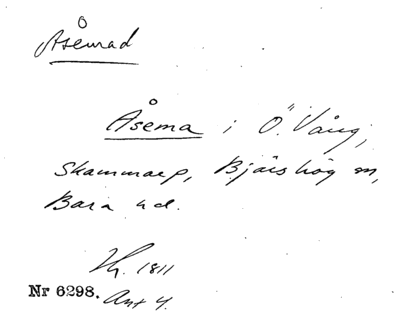 Åsemad
Åsema i Ö. Vång,
Skammarp, Bjärshög sn,
Bara hd.
Hh. 1811
Nr 6298. Ant 4.